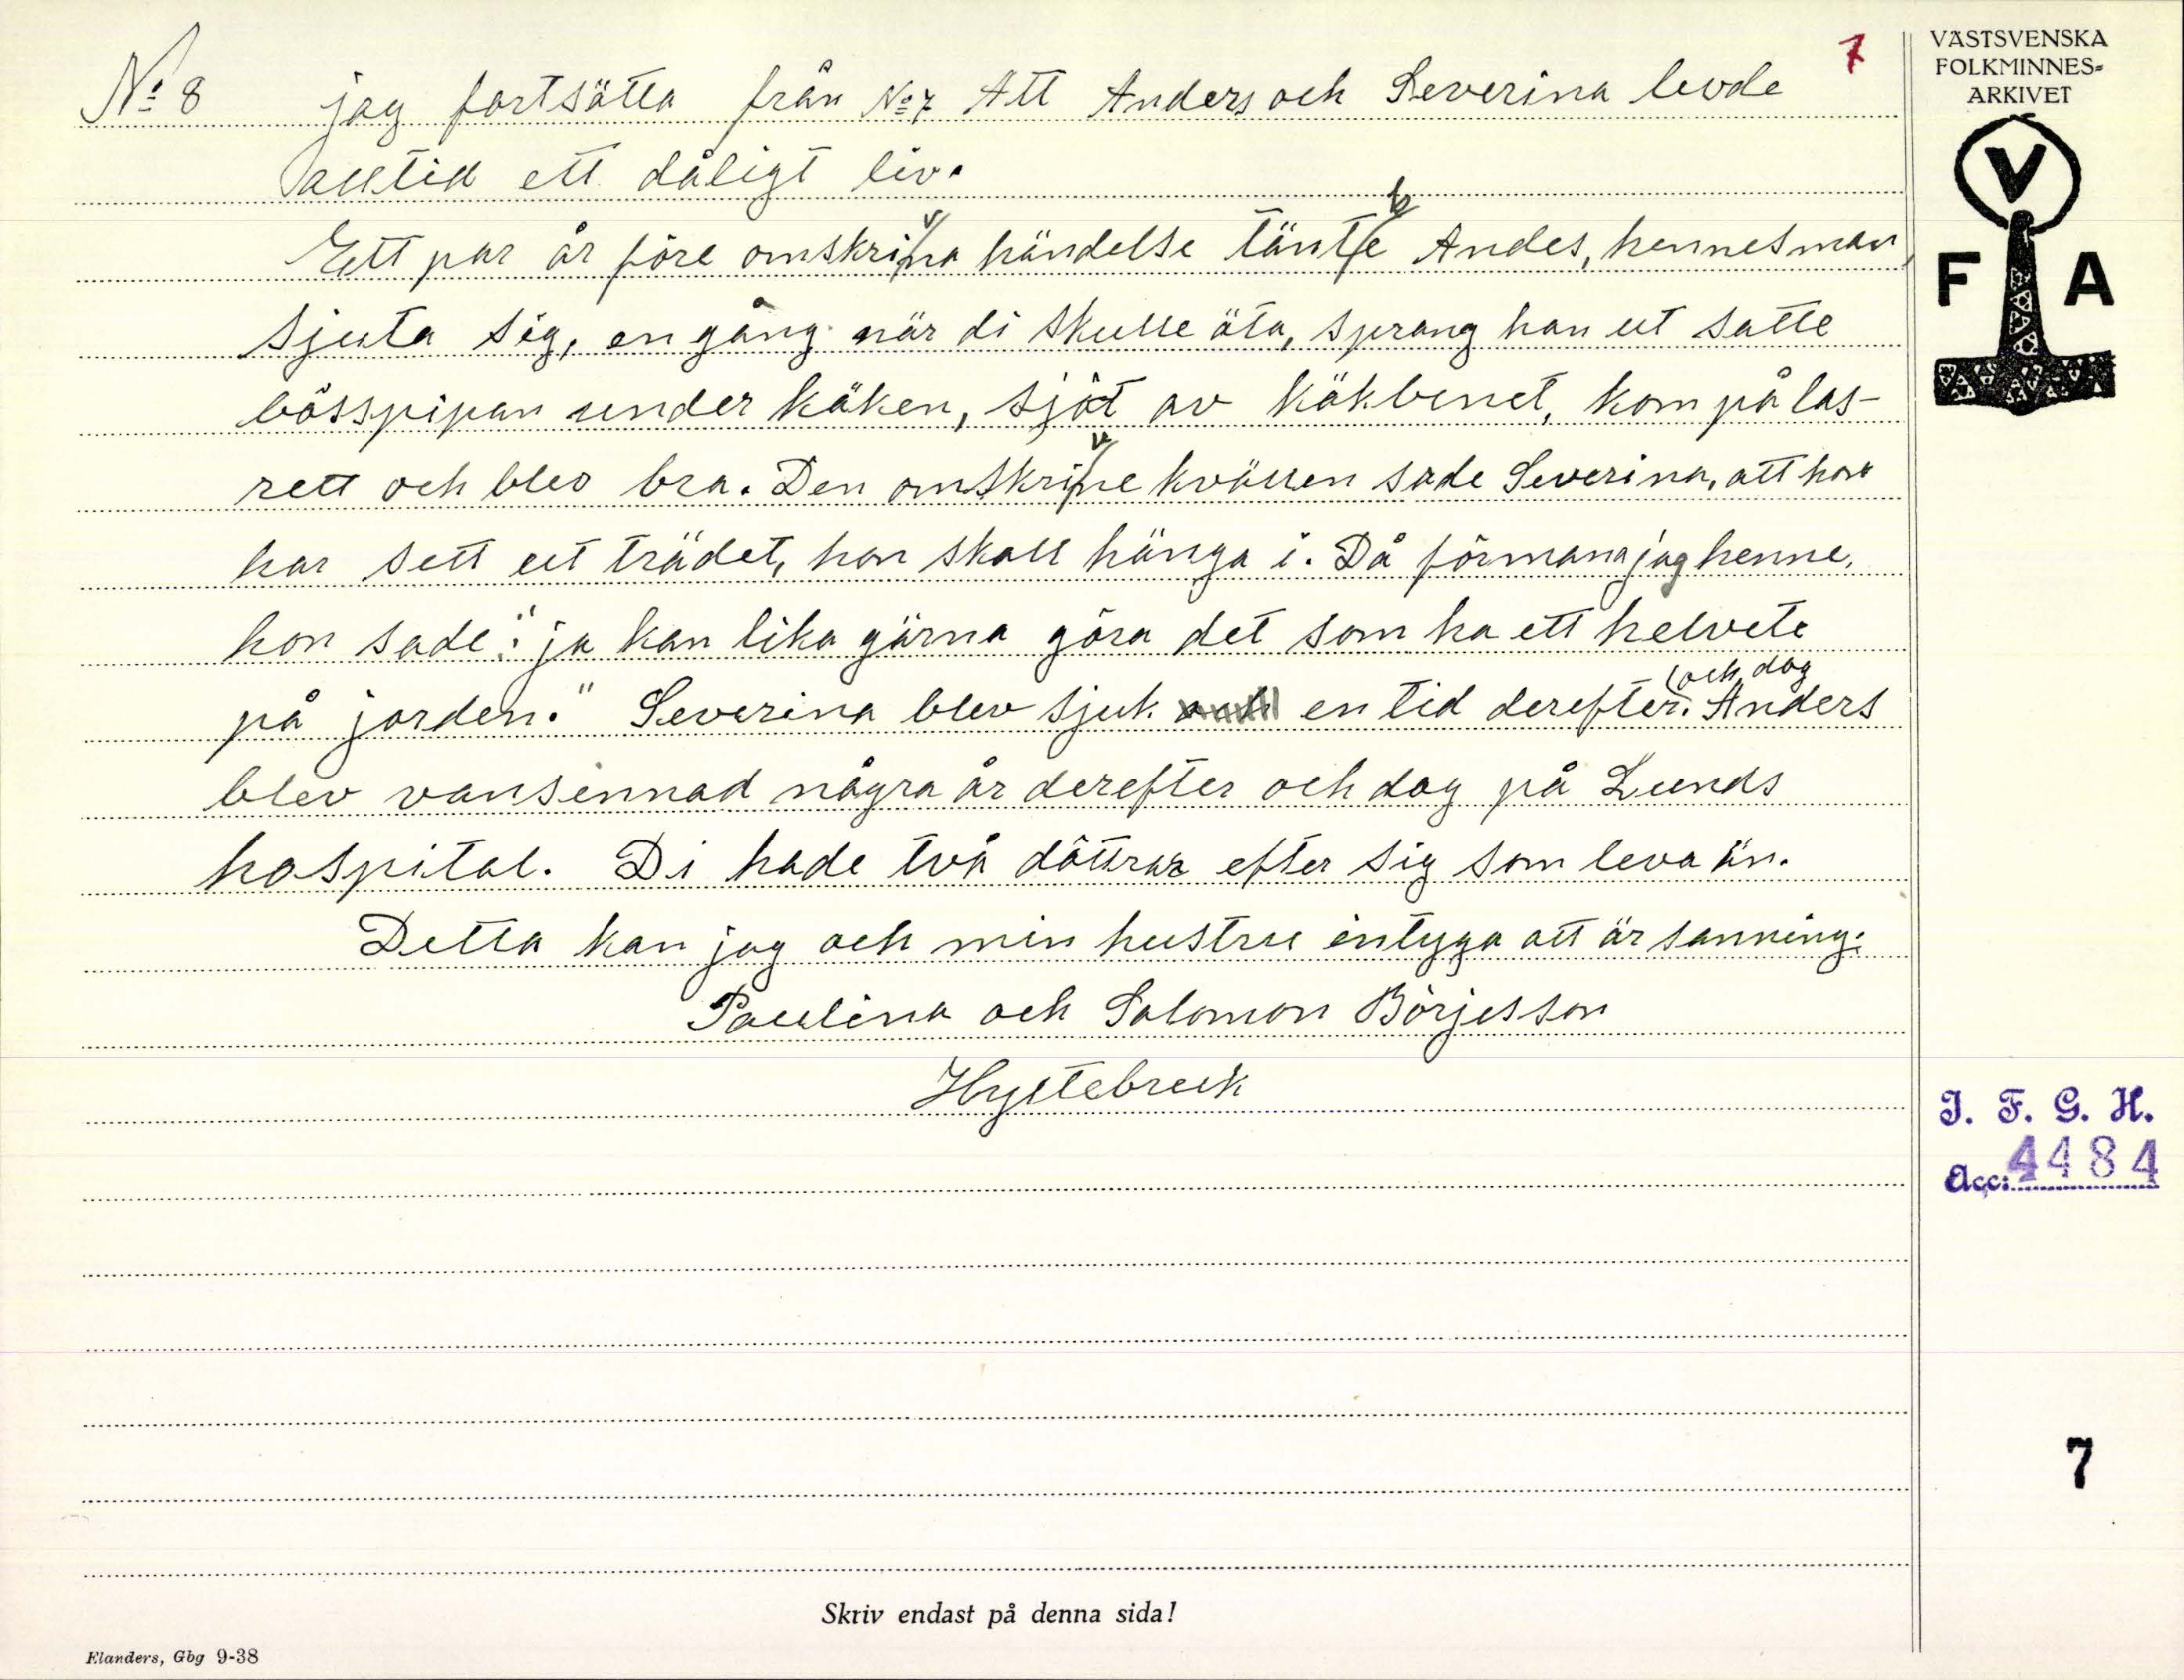 7
VÄSTSVENSKA
FOLKMINNES=
ARKIVET
V
F A
No 8 jag fortsätta från No 7 Att Anders och Severina levde
alltid ett dåligt liv.
Ett par år före omskrivna händelse täntke Andes, hennes man,
sjuta sig, en gång när di skulle äta, sprang han ut satte
bösspipan under käken, sjöt av käkbenet, kom på las-
rett och blev bra. Den omskrivne kvällen sade Severina, att hon
har sett ut trädet, hon skall hänga i. Då förmana jag henne,
hon sade: "ja kan lika gärna göra det som ha ett helvete
på jorden." Severina blev sjuk en tid derefter och dog. Anders
blev vansinnad några år derefter och dog på Lunds
hospital. Di hade två döttrar efter sig som leva än.
Detta kan jag och min hustru intyga att är sanning.
Paulina och Salomon Börjesson
Hyltebruk
I. F. G. H.
Acc: 4484
7
Skriv endast på denna sida!
Elanders, Gbg 9-38